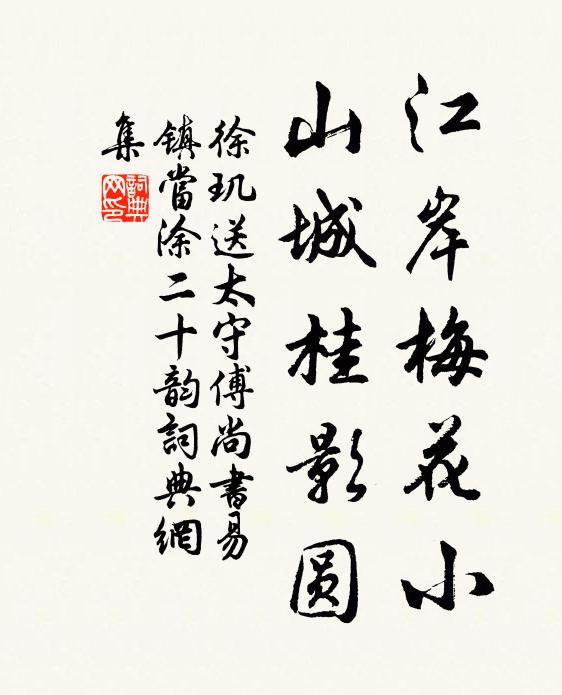 江岸梅花小
山城桂影圆
徐玑送太守傅尚書易
镇當涂二十韵詞典網
集
詞典
网印